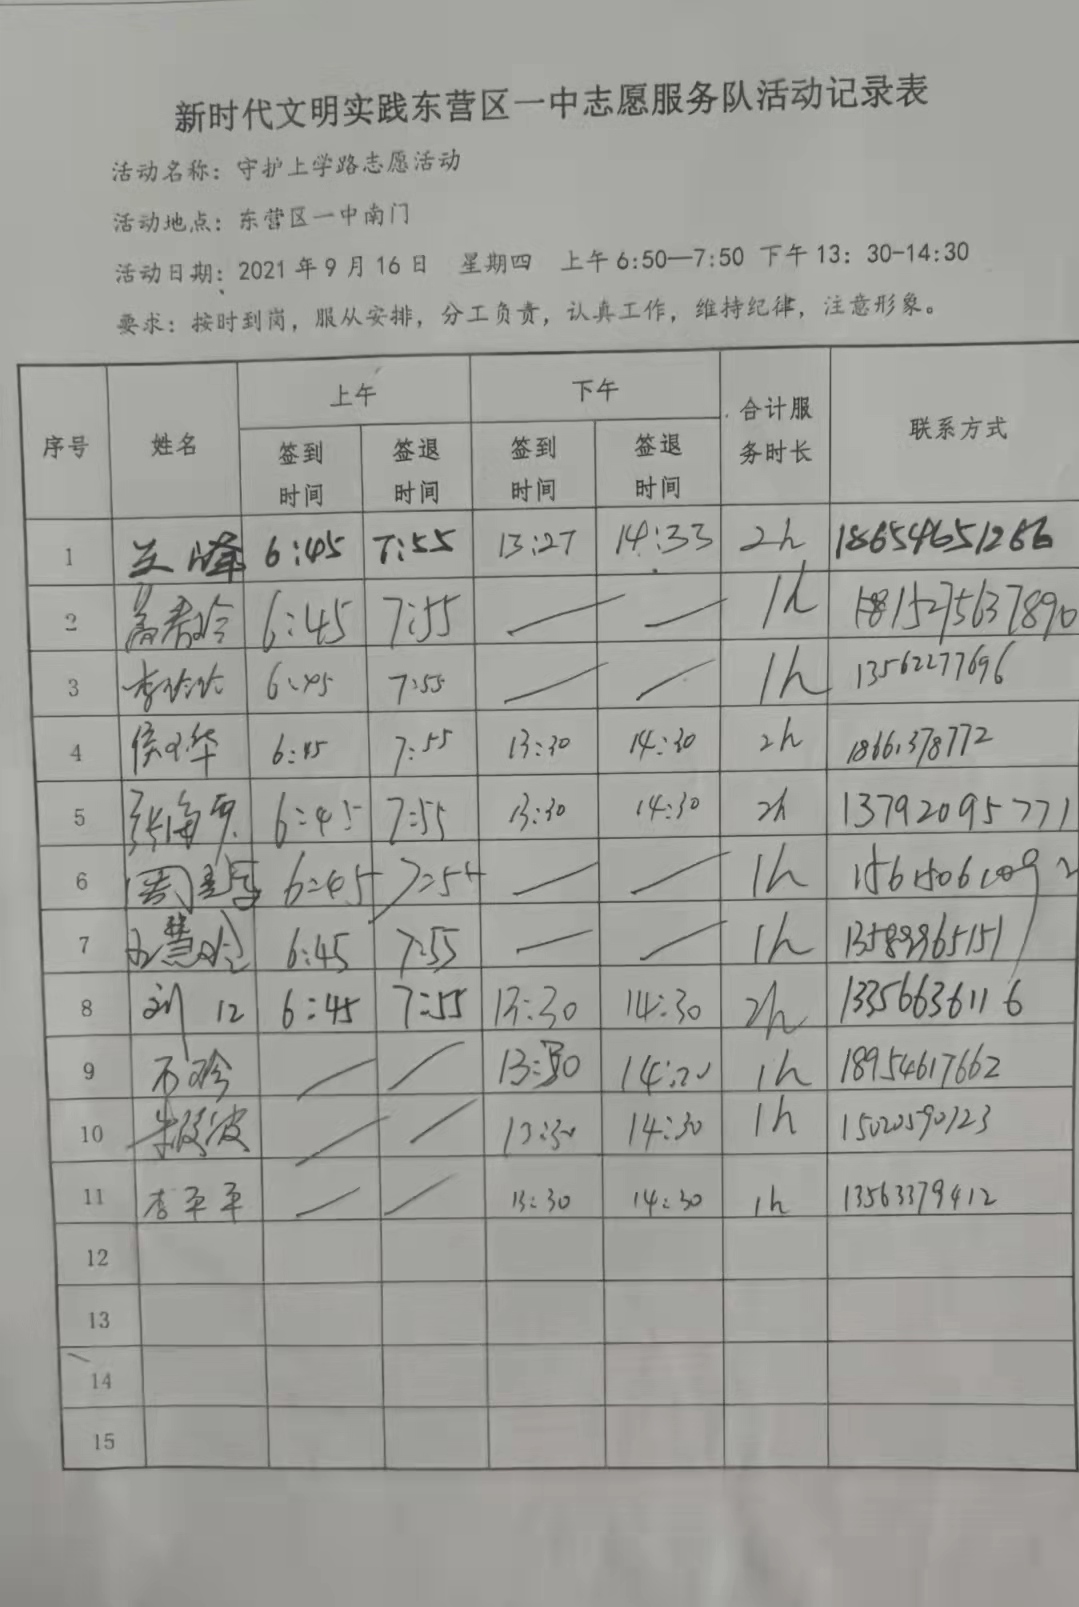 新时代文明实践东营区一中志愿服务队活动记录表
活动名称：守护上学路志愿活动
活动地点：东营区一中南门
活动日期：2021年9月16日 星期四 上午6:50—7:50 下午13：30-14:30
要求：按时到岗，服从安排，分工负责，认真工作，维持纪律，注意形象。
序号 姓名 上午 下午 合计服务时长 联系方式
签到时间 签退时间 签到时间 签退时间
1 6:45 7:55 13:27 14:33 2h 18654651266
2 6:45 7:55 — — 1h
3 6:45 7:55 — — 1h 13562277696
4 6:45 7:55 13:30 14:30 2h
5 张海 6:45 7:55 13:30 14:30 2h 13792095771
6 6:45 — — 1h
7 慧 6:45 7:55 — — 1h
8 刘 6:45 7:55 13:30 14:30 2h 13356636116
9 — — 13:30 1h 18954617662
10 — — 13:30 14:30 1h
11 李平平 — — 13:30 14:30 1h 13563379412
12
13
14
15